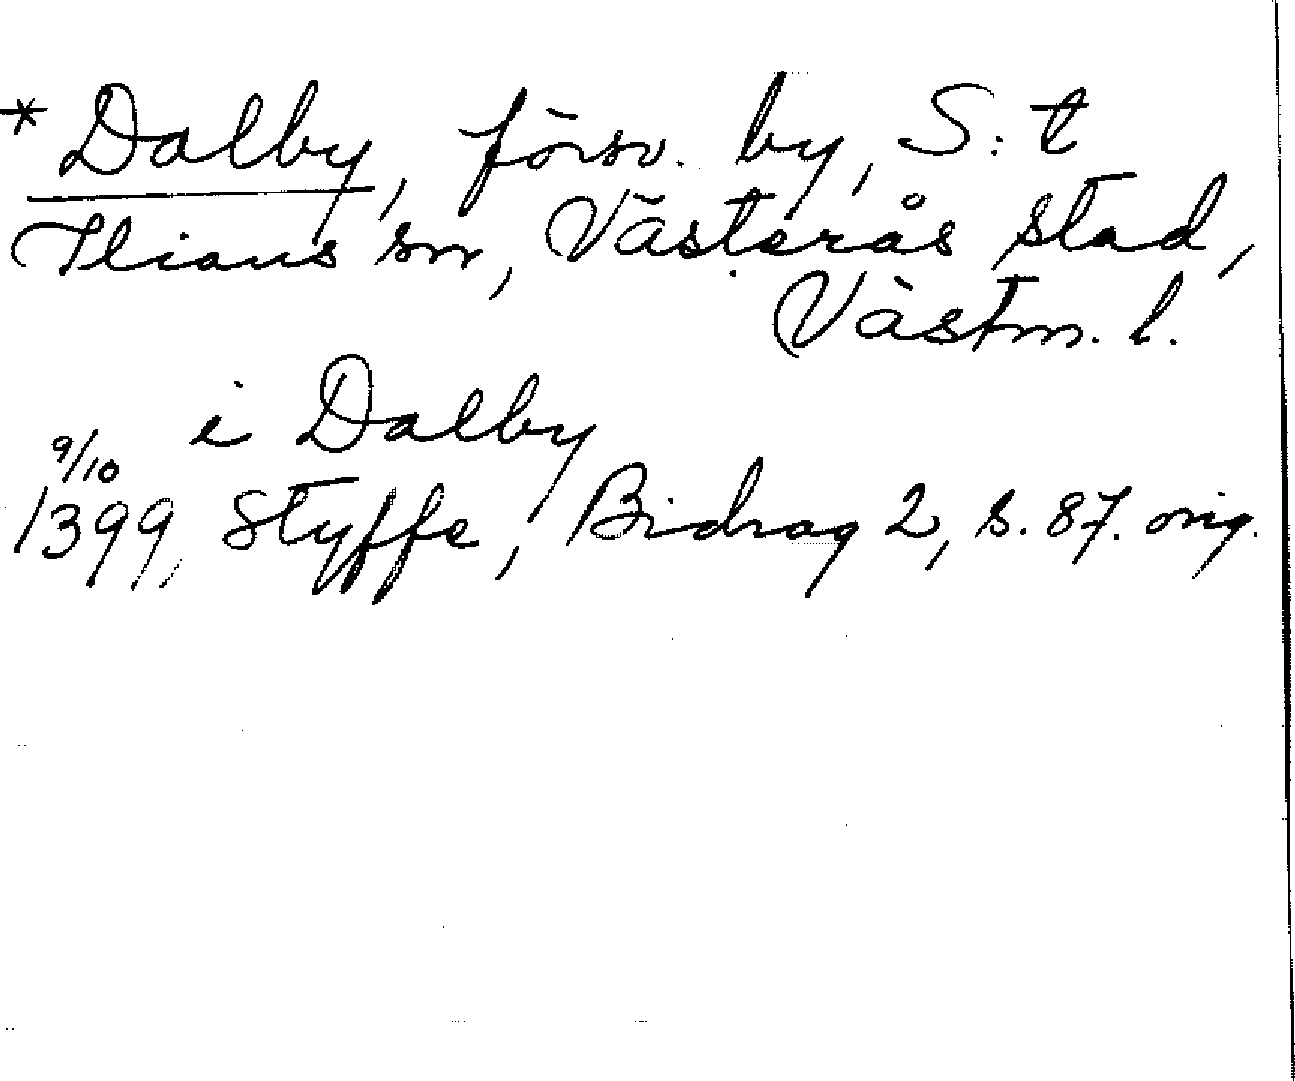 * Dalby, försv. by, S:t
Ilians sn, Västerås stad,
Västm. l.
i Dalby
9/10
1399, Styffe, Bidrag 2, s. 87. orig.